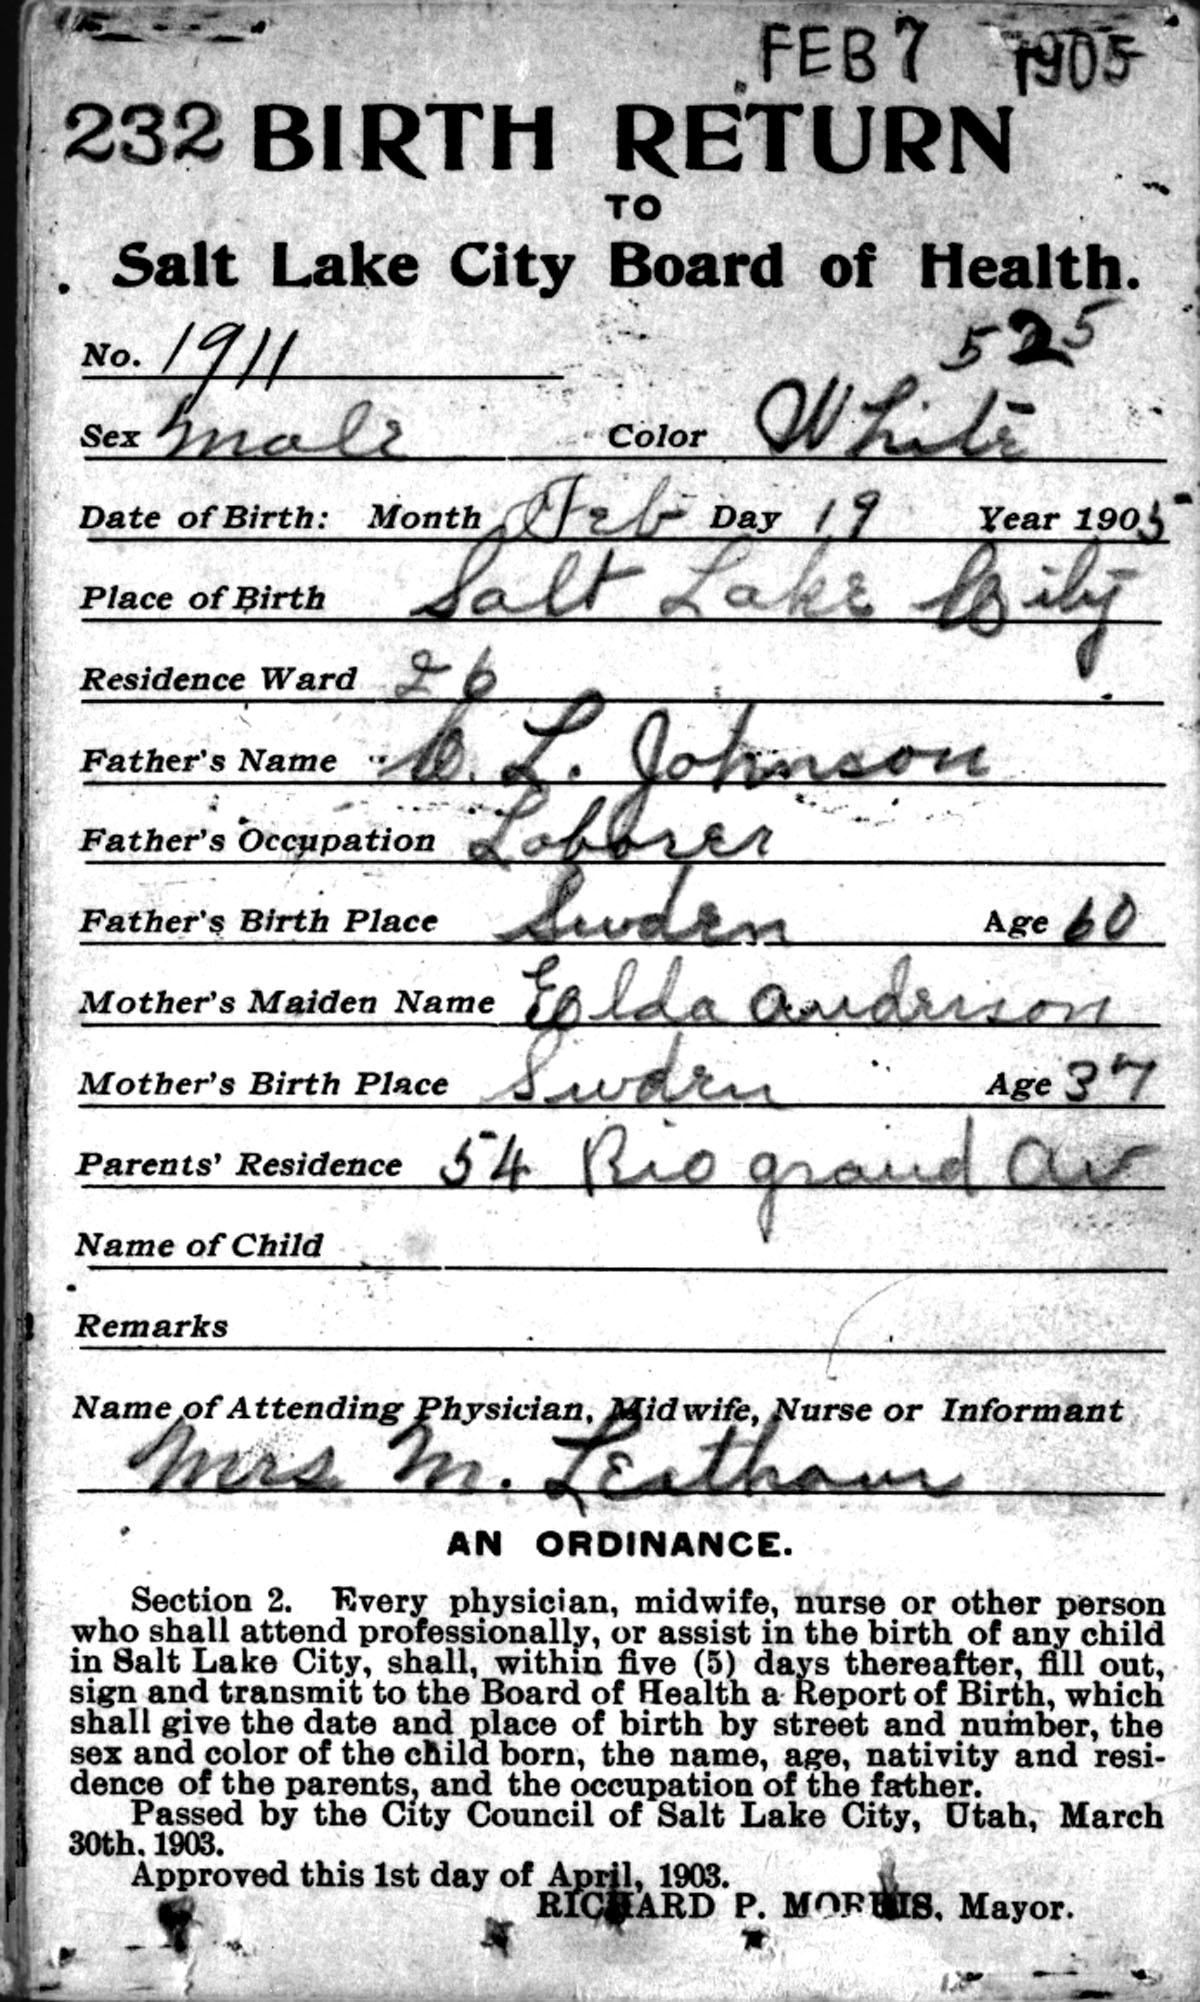 FEB 7 1905
232 BIRTH RETURN
TO
Salt Lake City Board of Health.
No. 1911 525
Sex Male Color White
Date of Birth: Month Feb Day 19 Year 1905
Place of Birth Salt Lake City
Residence Ward 26
Father's Name C. L. Johnson
Father's Occupation Laborer
Father's Birth Place Sweden Age 60
Mother's Maiden Name Anderson
Mother's Birth Place Sweden Age 37
Parents' Residence 54 Rio grand Av
Name of Child
Remarks
Name of Attending Physician, Midwife, Nurse or Informant
Mrs M.
AN ORDINANCE.
Section 2. Every physician, midwife, nurse or other person
who shall attend professionally, or assist in the birth of any child
in Salt Lake City, shall, within five (5) days thereafter, fill out,
sign and transmit to the Board of Health a Report of Birth, which
shall give the date and place of birth by street and number, the
sex and color of the child born, the name, age, nativity and resi-
dence of the parents, and the occupation of the father.
Passed by the City Council of Salt Lake City, Utah, March
30th, 1903.
Approved this 1st day of April, 1903.
RICHARD P. MORRIS, Mayor.